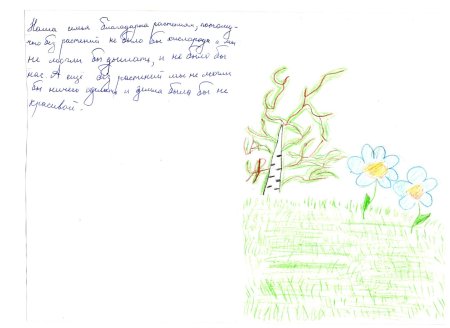 Наша семья благодарна растениям, потому-
что без растений не было бы кислорода и мы
не могли бы дышать, и не было бы
нас. А ещё без растений мы не могли
бы ничего сделать и земля была бы не
красивой.